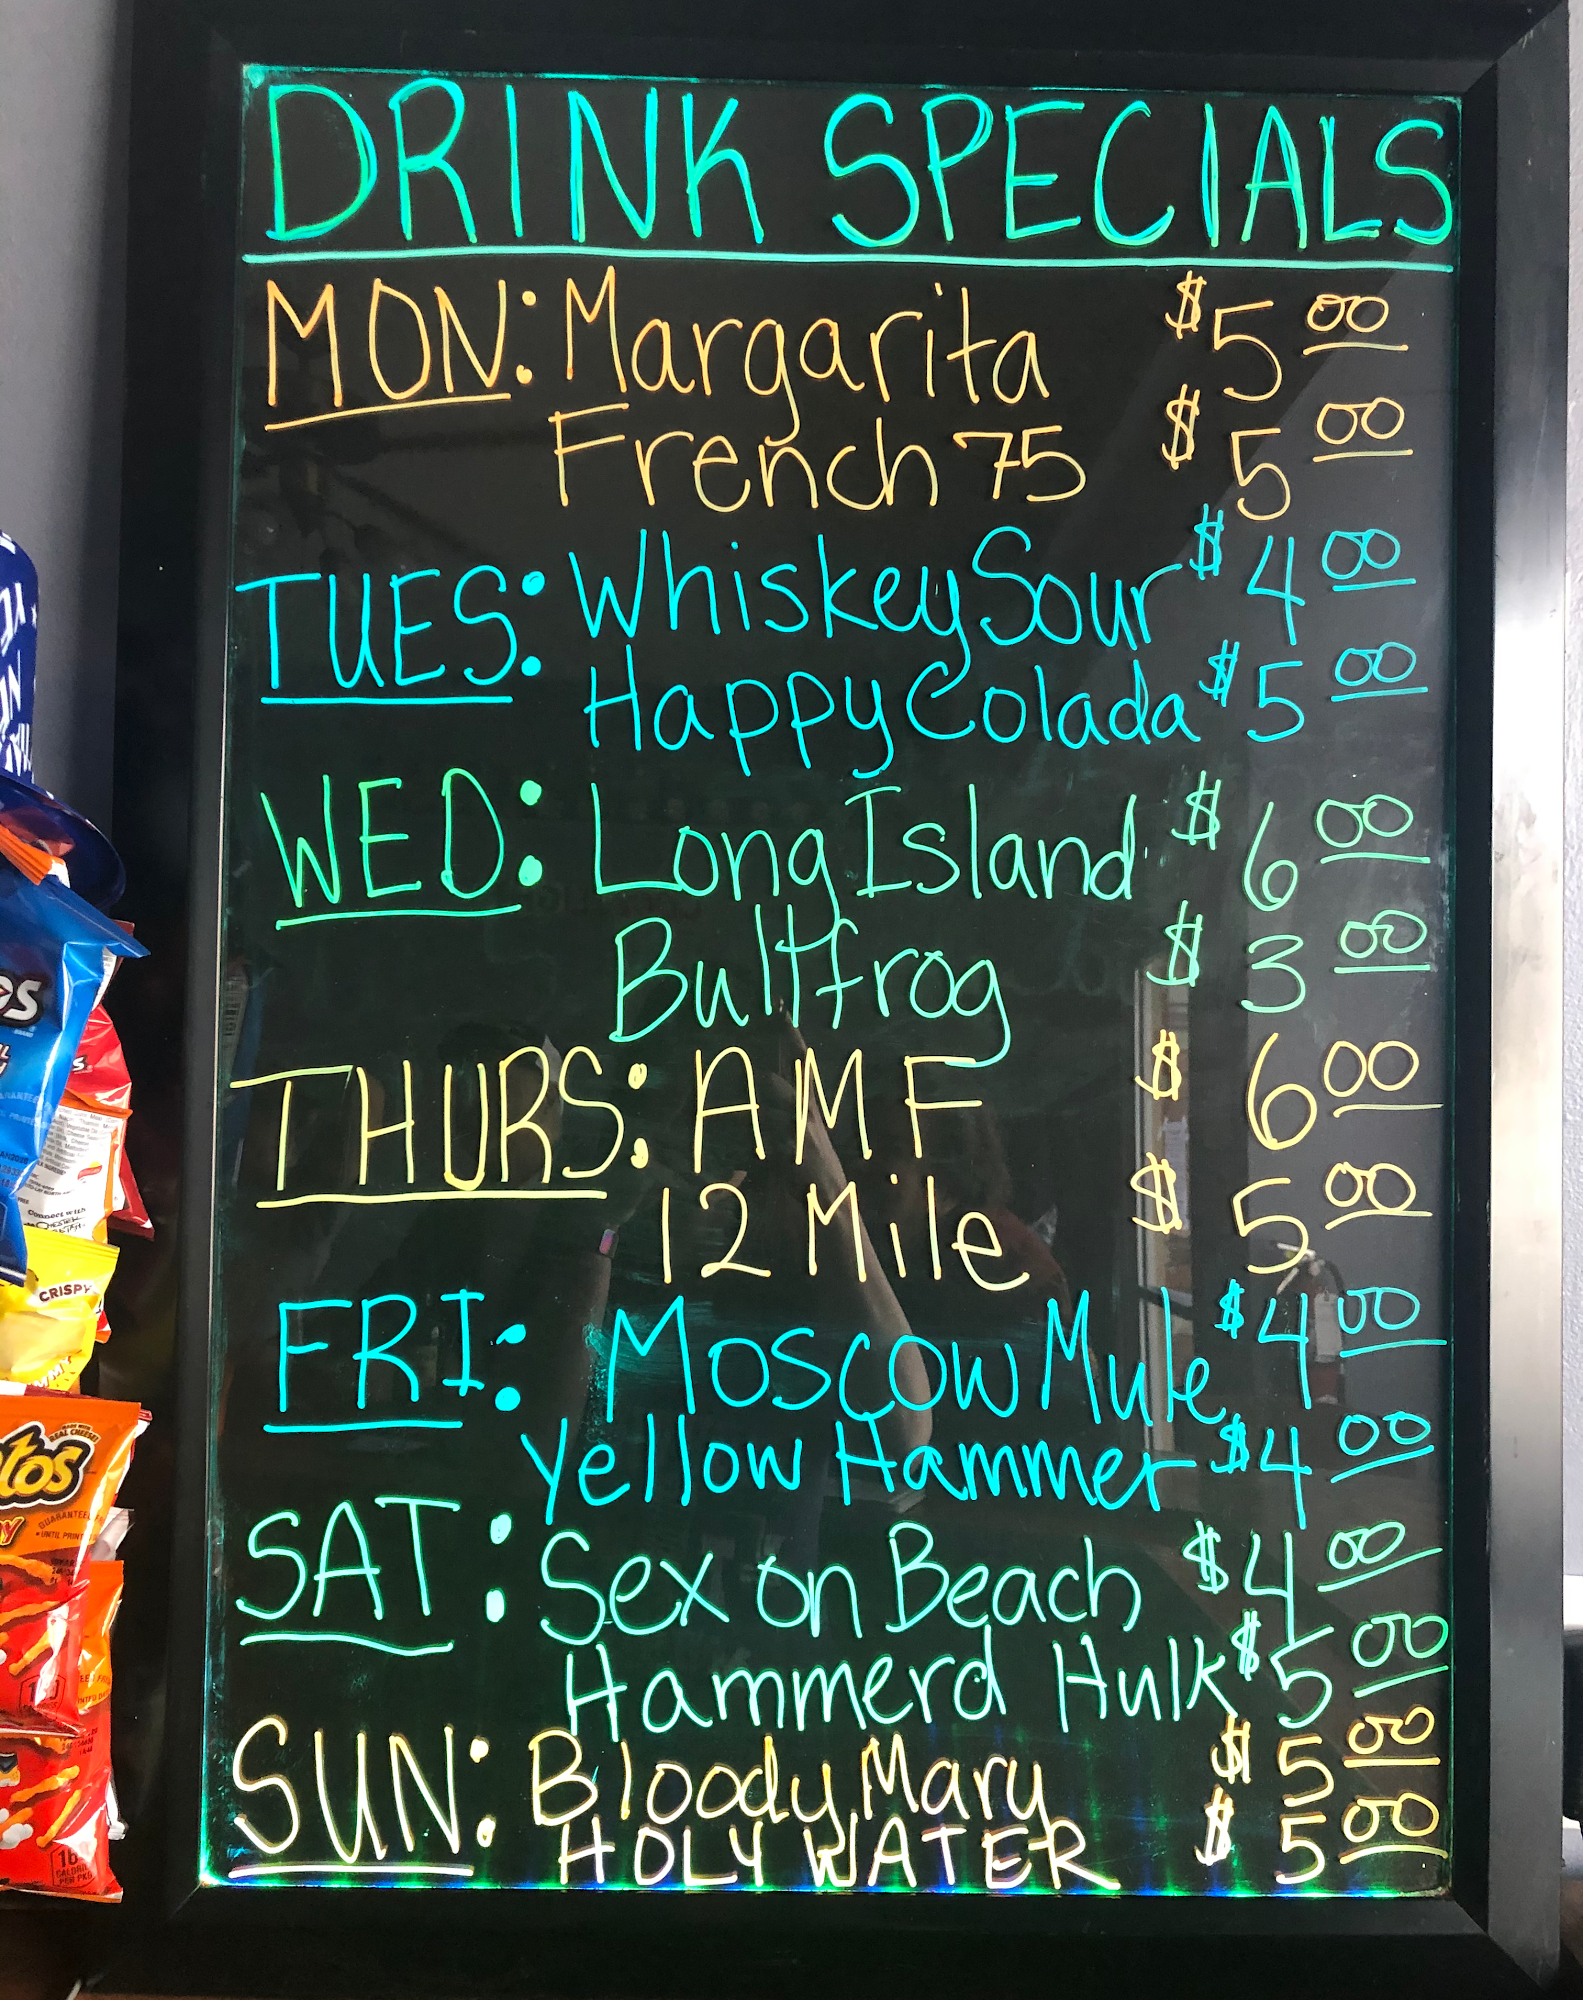 DRINK SPECIALS
MON: Margarita $5 00
French 75 $5 00
TUES: Whiskey Sour $4 00
Happy Colada $5 00
WED: Long Island $6 00
Bullfrog $3 00
THURS: AMF $6 00
12 Mile $5 00
FRI: Moscow Mule $4 00
Yellow Hammer $4 00
SAT: Sex on Beach $4 00
Hammerd Hulk $5 00
SUN: Bloody Mary $5 00
HOLY WATER $5 00
CRISPY